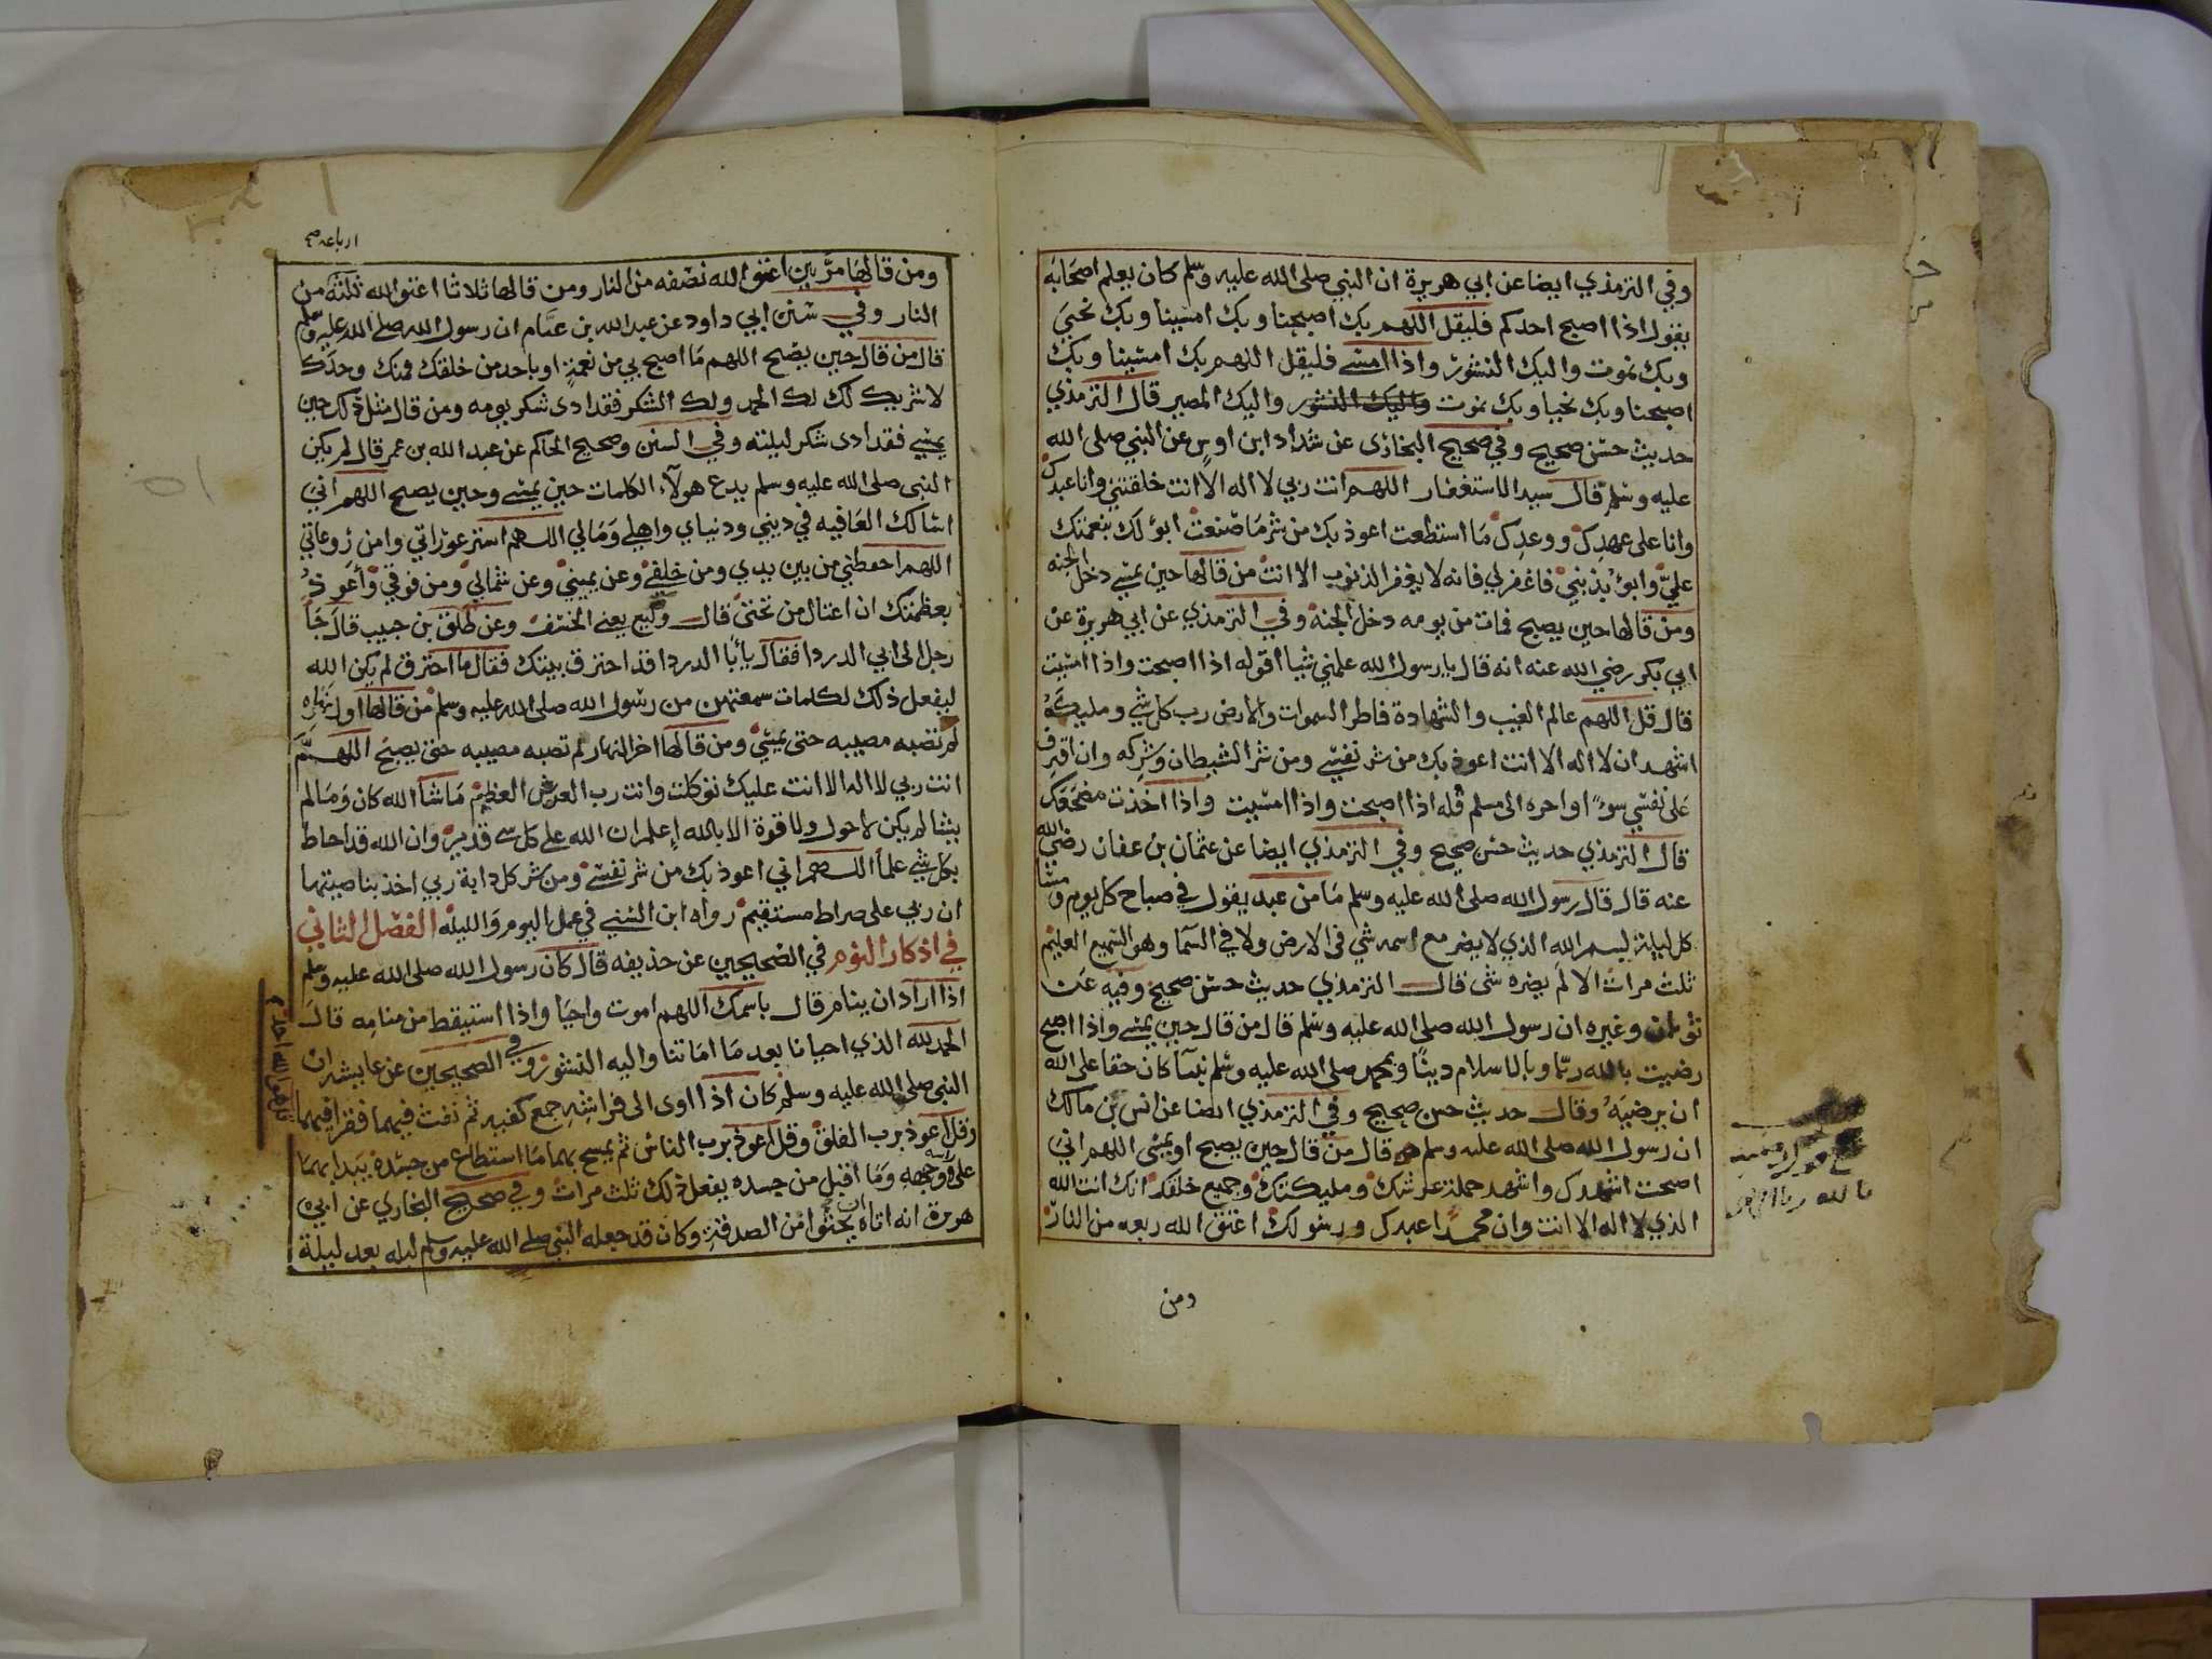 وفي الترمذي ايضا عن ابي هريرة ان النبي صلى الله عليه وسلم كان يعلم اصحابه
يقول اذا اصبح احدكم فليقل اللهم بك اصبحنا وبك امسينا وبك نحيى
وبك نموت واليك النشور واذا امسى فليقل اللهم بك امسينا وبك
اصبحنا وبك نحيا وبك نموت واليك النشور واليك المصير قال الترمذي
حديث حسن صحيح وفي صحيح البخارى عن شداد ابن اوس عن النبي صلى الله
عليه وسلم قال سيد الاستغفار اللهم انت ربي لا اله الا انت خلقتني وانا عبدك
وانا على عهدك ووعدك ما استطعت اعوذ بك من شر ما صنعت ابؤ لك بنعمتك
علي وابؤ بذنبي فاغفر لي فانه لا يغفر الذنوب الا انت من قالها حين يمسي دخل الجنه
ومن قالها حين يصبح فمات من يومه دخل الجنة وفي الترمذي عن ابي هريرة عن
ابي بكر رضي الله عنه انه قال يا رسول الله علمني شيا اقوله اذا اصبحت واذا امسيت
قال قل اللهم عالم الغيب والشهادة فاطر السموات والارض رب كل شي ومليكه
اشهد ان لا اله الا انت اعوذ بك من شر نفسي ومن شر الشيطان وشركه وان اقترف
على نفسي سوءً او اجره الى مسلم قله اذا اصبحت واذا امسيت واذا اخذت مضجعك
قال الترمذي حديث حسن صحيح وفي الترمذي ايضا عن عثمان بن عفان رضي الله
عنه قال قال رسول الله صلى الله عليه وسلم ما من عبد يقول في صباح كل يوم ومسا
كل ليلة بسم الله الذي لا يضر مع اسمه شي في الارض ولا في السما وهو السميع العليم
ثلث مرات الا لم يضره شى قال الترمذي حديث حسن صحيح وفيه عن
ثوبان وغيره ان رسول الله صلى الله عليه وسلم قال من قال حين يمسي واذا اصبح
رضيت بالله ربا وبالاسلام دينا وبمحمد صلى الله عليه وسلم نبيا كان حقا على الله
ان يرضيه وقال حديث حسن صحيح وفي الترمذي ايضا عن انس بن مالك
ان رسول الله صلى الله عليه وسلم قال من قال حين يصبح او يمسى اللهم اني
اصبحت اشهدك واشهد حملة عرشك ومليكتك وجميع خلقك انك انت الله
الذي لا اله الا انت وان محمدا عبدك ورسولك اعتق الله ربعه من النار
ومن
ومن قالها مرتين اعتق الله نصفه من النار ومن قالها ثلاثا اعتق الله ثلثة من
النار وفي سنن ابي داود عن عبد الله بن غنام ان رسول الله صلى الله عليه وسلم
قال من قال حين يصبح اللهم ما اصبح بي من نعمة او باحد من خلقك فمنك وحدك
لا شريك لك لك الحمد ولك الشكر فقد ادى شكر يومه ومن قال مثل ذلك حين
يمسي فقد ادى شكر ليلته وفي السنن وصحيح الحاكم عن عبد الله بن عمر قال لم يكن
النبى صلى الله عليه وسلم يدع هولاء الكلمات حين يمسي وحين يصبح اللهم اني
اسالك العافيه في ديني ودنياي واهلي ومالي اللهم استر عوراتي وامن روعاتي
اللهم احفظني من بين يدي ومن خلفي وعن يميني وعن شمالي ومن فوقي واعوذ
بعظمتك ان اغتال من تحتى قال وكيع يعني الخسف وعن طلق بن حبيب قال جا
رجل الى ابي الدردا فقال يا أبا الدردا قد احترق بيتك فقال ما احترق لم يكن الله
ليفعل ذلك لكلمات سمعتهن من رسول الله صلى الله عليه وسلم من قالها اول نهاره
لم تصبه مصيبه حتى يمسي ومن قالها اخر النهار لم تصبه مصيبه حتى يصبح اللهم
انت ربي لا اله الا انت عليك توكلت وانت رب العرش العظيم ما شا الله كان وما لم
يشا لم يكن لا حول ولا قوة الا بالله إعلم ان الله على كل شى قدير وان الله قد احاط
بكل شي علما اللهم اني اعوذ بك من شر نفسي ومن شر كل دابة ربي اخذ بناصيتها
ان ربي على صراط مستقيم رواه ابن السني في عمل اليوم والليله الفصل الثاني
في اذكار النوم في الصحيحين عن حذيفه قال كان رسول الله صلى الله عليه وسلم
اذا اراد ان ينام قال باسمك اللهم اموت واحيا واذا استيقظ من منامه قال
الحمد لله الذي احيانا بعد ما اماتنا واليه النشور وفي الصحيحين عن عايشه ان
النبي صلى الله عليه وسلم كان اذا اوى الى فراشه جمع كفيه ثم نفث فيهما فقرا فيهما
قل هو الله احد
وقل اعوذ برب الفلق وقل اعوذ برب الناس ثم يمسح بهما ما استطاع من جسده يبدا بهما
على راسه ووجهه وما اقبل من جسده يفعل ذلك ثلث مرات وفي صحيح البخاري عن ابي
هريرة انه اتاه ات يحثوا من الصدقة وكان قد جعله النبي صلى الله عليه وسلم ليله بعد ليلة